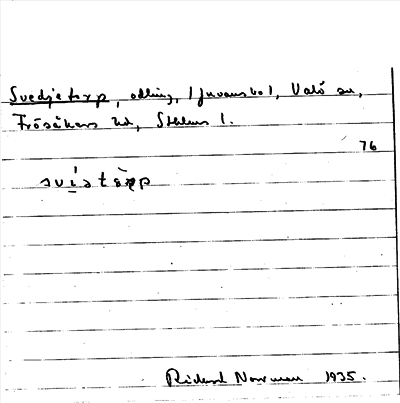 Svedjetorp, odling, Ijuvansbol, Valö sn,
Frösåkers hd, Sthlms l.
76
svistèrp
Rickard Norrman 1935.